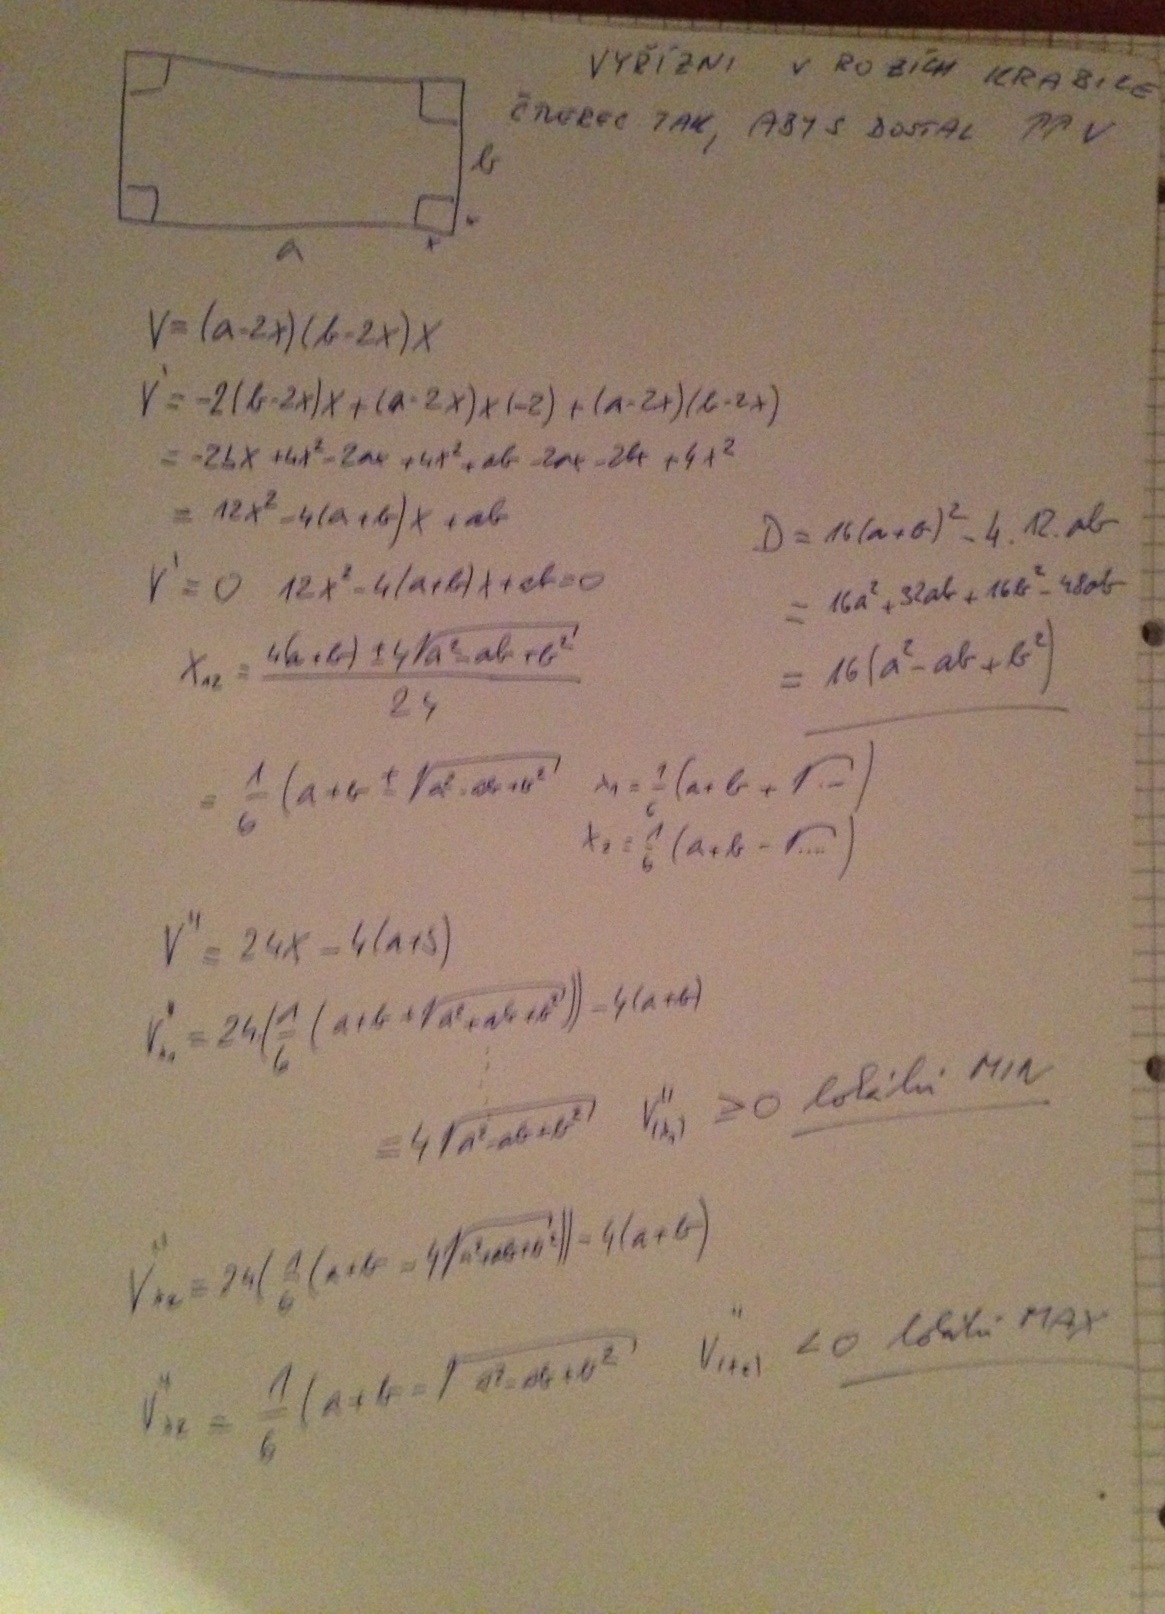 VYŘÍZNI V ROZÍCH KRABICE
ČTVEREC TAK, ABYS DOSTAL ↑↑ V
b
x
a
x
V = (a-2x)(b-2x)x
V' = -2(b-2x)x + (a-2x)x(-2) + (a-2x)(b-2x)
= -2bx + 4x² - 2ax + 4x² + ab - 2ax - 2bx + 4x²
= 12x² - 4(a+b)x + ab
V' = 0 12x² - 4(a+b)x + ab = 0
D = 16(a+b)² - 4.12.ab
= 16a² + 32ab + 16b² - 48ab
= 16(a² - ab + b²)
x₁₂ = (4(a+b) ± 4√(a² - ab + b²)) / 24
= 1/6 (a+b ± √(a² - ab + b²) x₁ = 1/6 (a+b + √...)
x₂ = 1/6 (a+b - √....)
V'' = 24x - 4(a+b)
V''x₁ = 24(1/6 (a+b + √(a² + ab + b²))) - 4(a+b)
= 4√(a² - ab + b²) V''(x₁) ≥ 0 lokální MIN
V''x₂ = 24(1/6 (a+b - 4√(a² + ab + b²))) - 4(a+b)
V''x₂ = 1/6 (a+b - √(a² - ab + b²) V''(x₂) < 0 lokální MAX